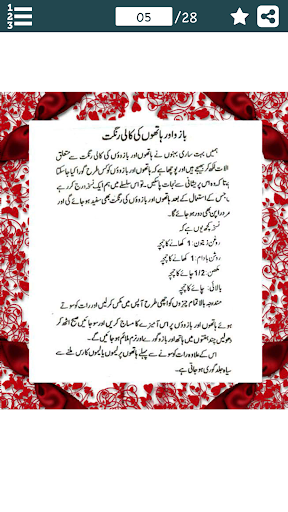 1
2
3
05 /28
بازو اور ہاتھوں کی کالی رنگت
ہمیں بہت ساری بہنوں نے ہاتھوں اور بازوؤں کی کالی رنگت سے متعلق
الات لکھ کر بھیجے ہیں اور پوچھا ہے کہ ہاتھوں اور بازوؤں کو کس طرح گورا کیا جا سکتا
ہے تا کہ وہ اس پریشانی سے نجات پا سکیں۔ تو اس سلسلے میں ہم ایک نسخہ درج کر رہے
، جس کے استعمال کے بعد ہاتھوں اور بازوؤں کی رنگت بھی سفید ہو جائے گا
دور ہو جائے گا۔
نسخہ کچھ یوں ہے کہ
روغن زیتون: 1 کھانے کا چمچ
روغن بادام: 1 کھانے کا چمچ
مکھن: 1/2 چائے کا چمچ
بالائی: چائے کا چمچ
مندرجہ بالا تمام چیزوں کو اچھی طرح آپس میں مکس کر لیں اور رات کو سوتے
ہوئے ہاتھوں اور بازوؤں پر اس آمیزے کا مساج کریں اور سو جائیں صبح اٹھ کر
دھولیں چند ہفتوں میں ہاتھ اور بازو گورے اور نرم ملائم ہو جائیں گے۔
اس کے علاوہ رات کو سونے سے پہلے ہاتھوں پر لیموں یا لیموں کا رس ملنے سے
سیاہ جلد گوری ہو جاتی ہے۔